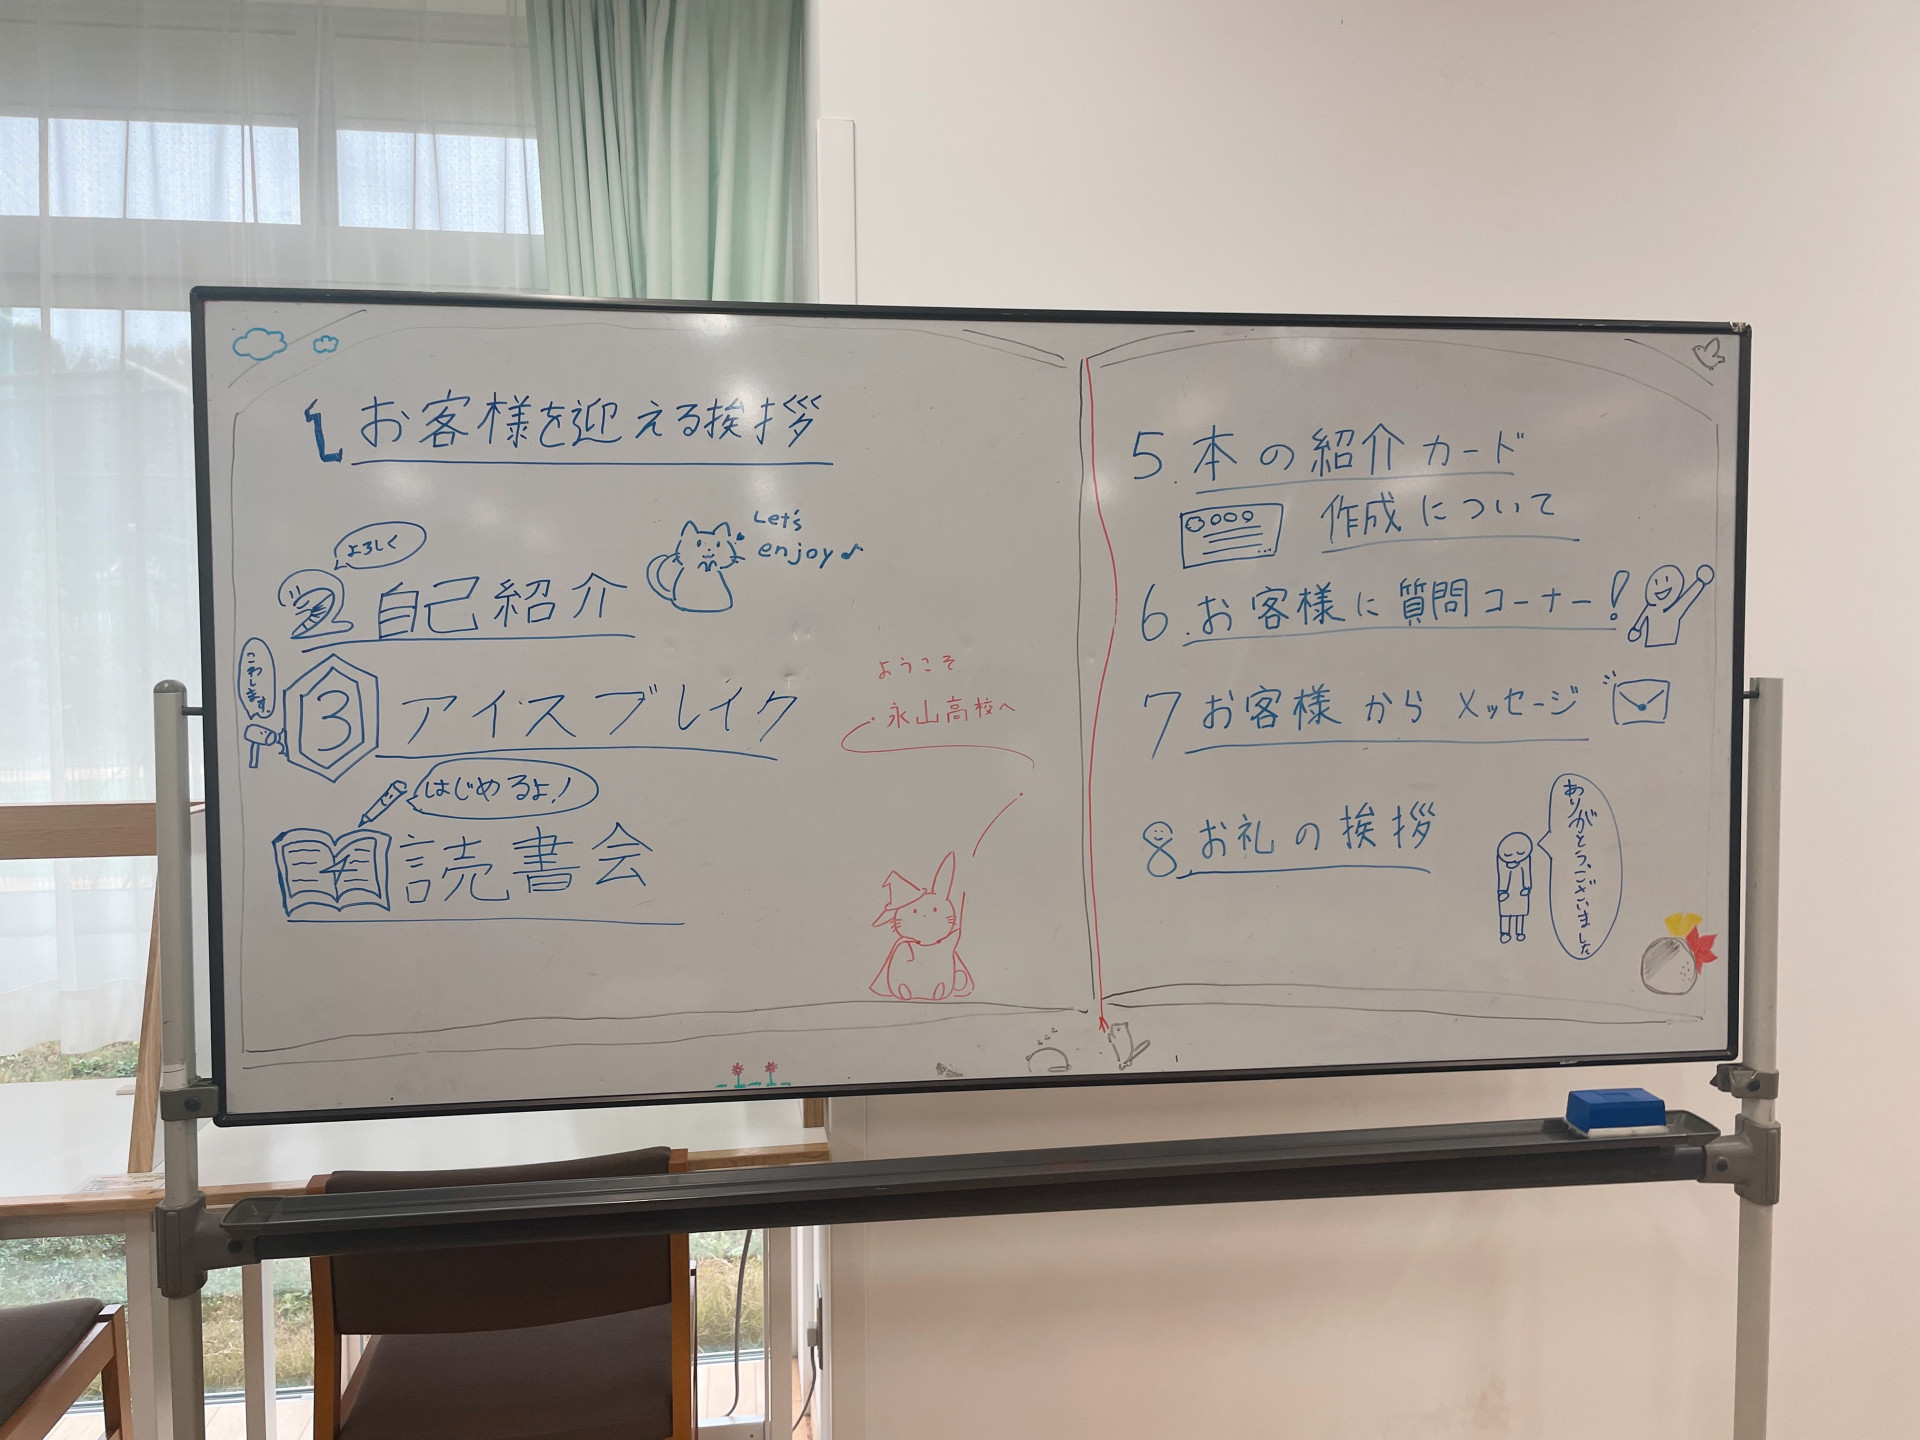 1 お客様を迎える挨拶
よろしく
2 自己紹介
Let's
enjoy♪
こわします。
3 アイスブレイク
ようこそ
永山高校へ
はじめるよ!
4 読書会
5. 本の紹介カード
作成について
6. お客様に質問コーナー!
7 お客様からメッセージ
8. お礼の挨拶
ありがとうございました